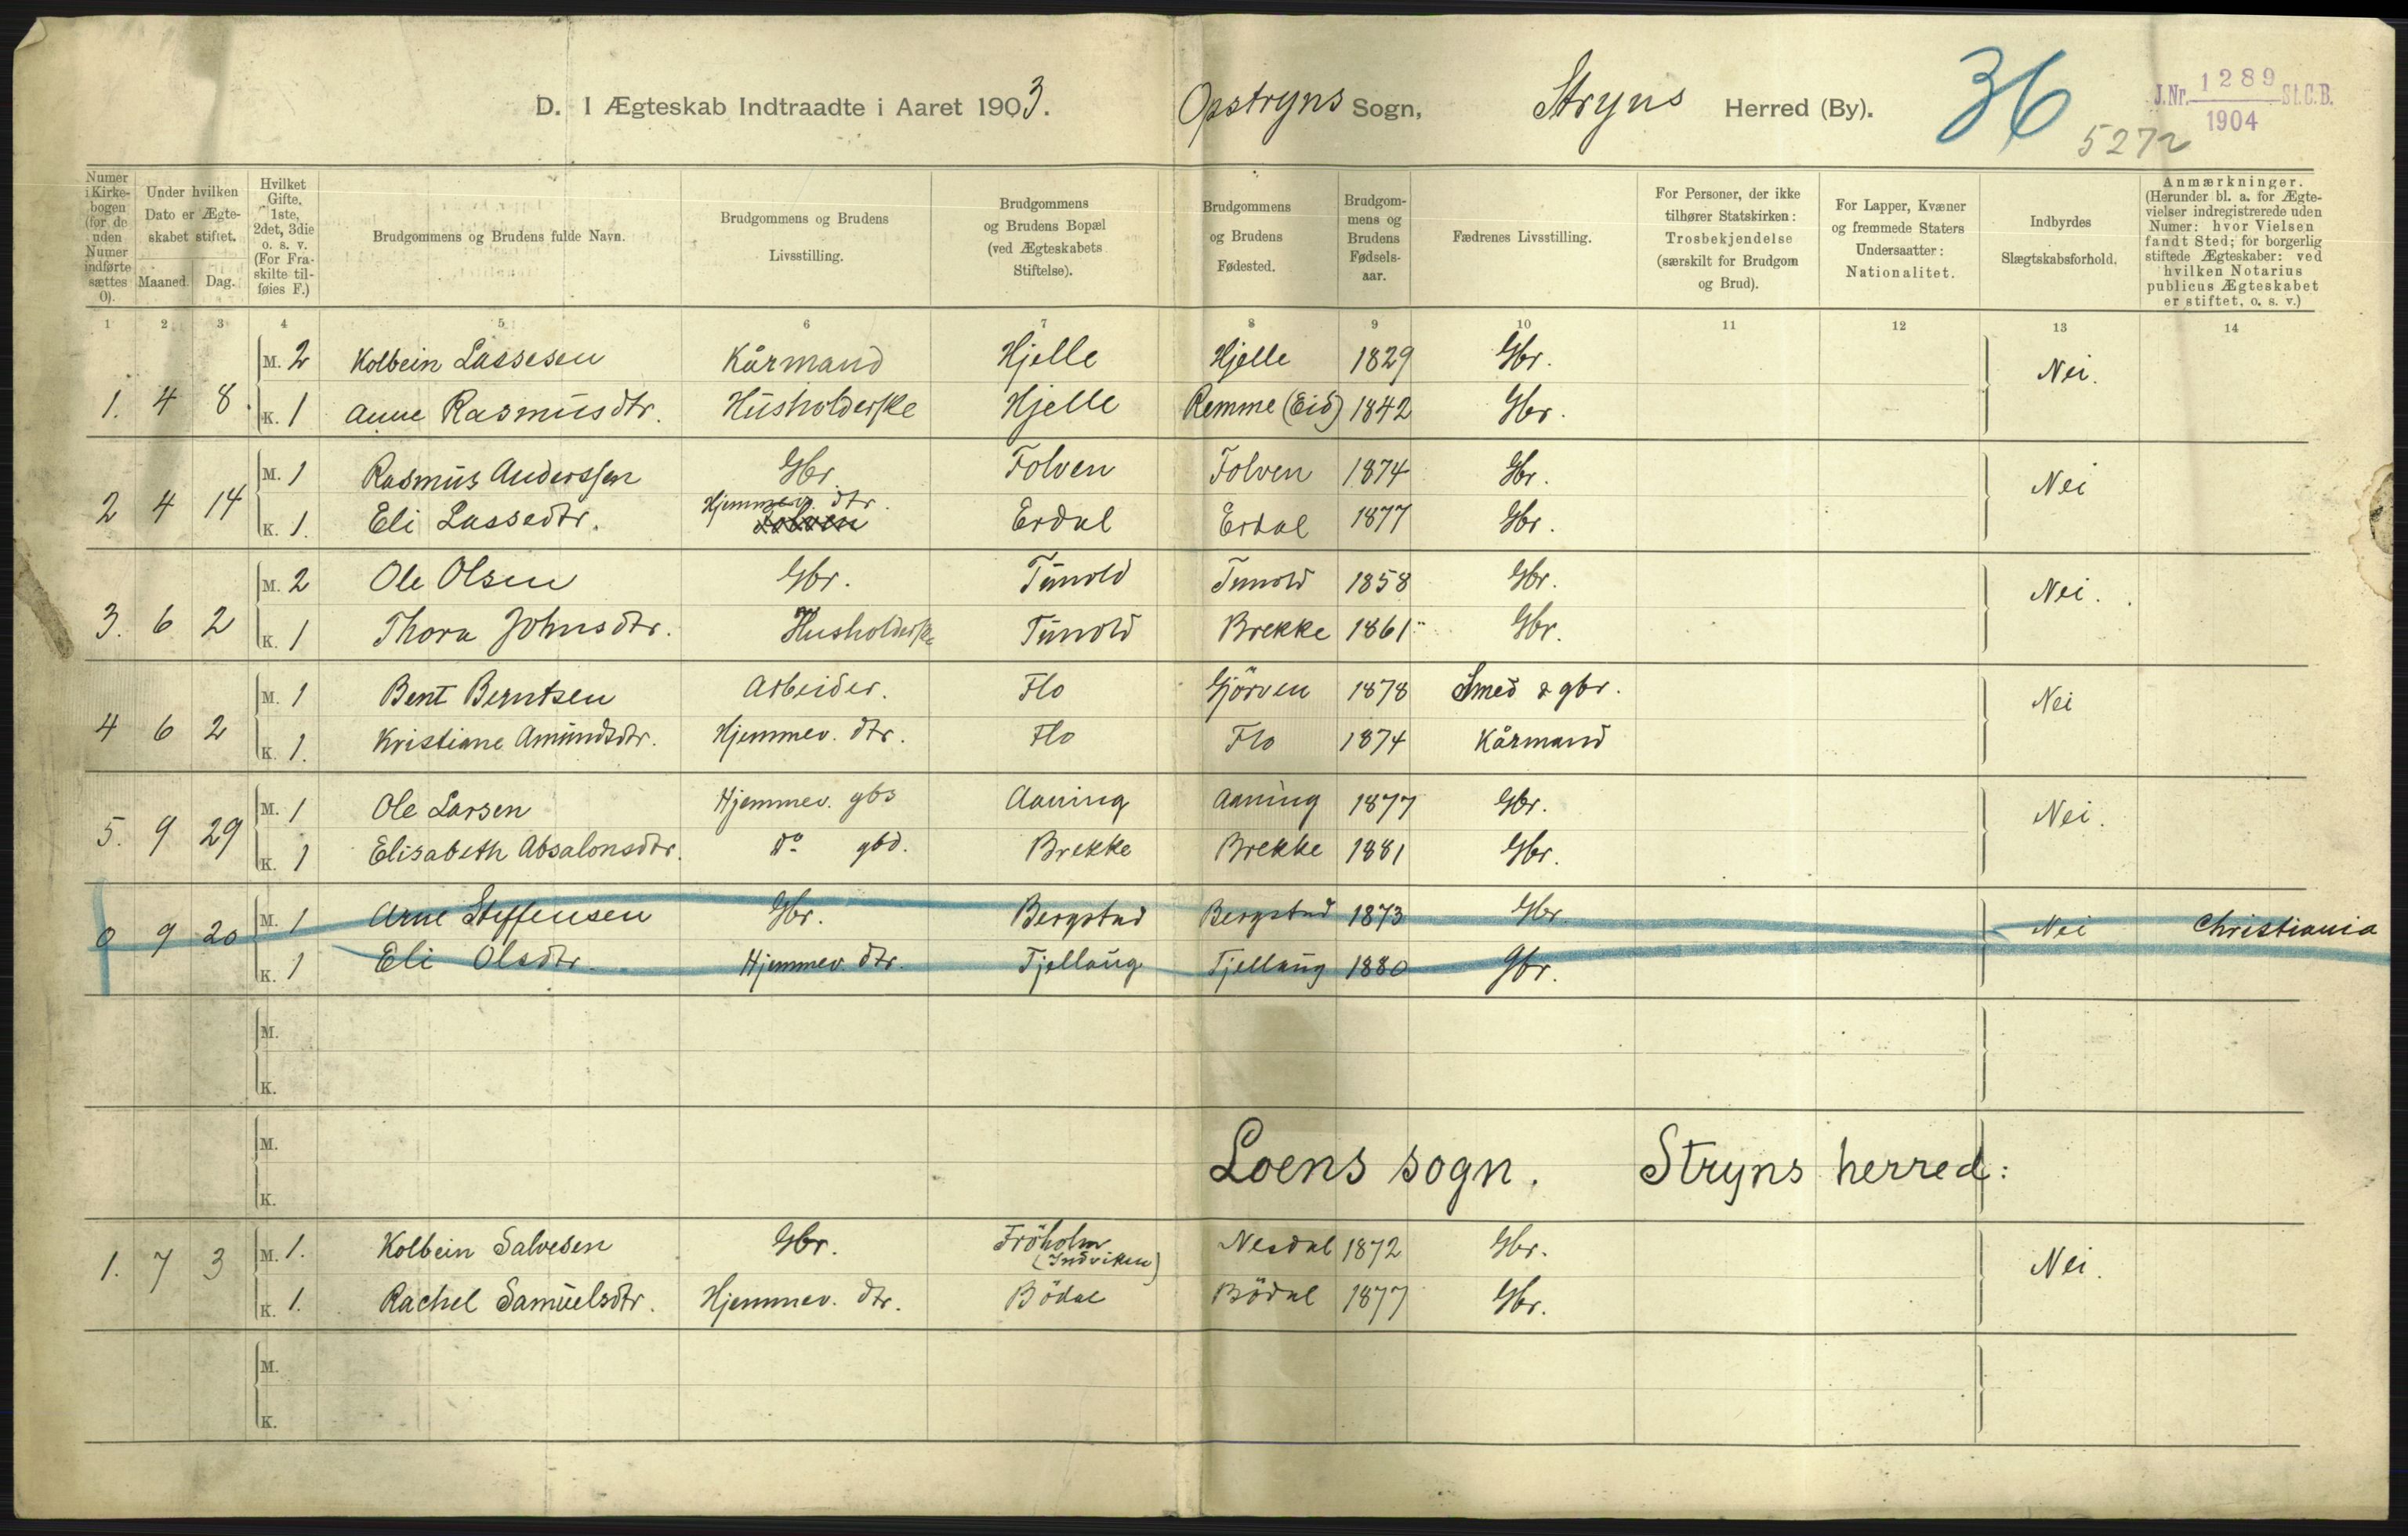 D. I Ægteskab Indtraadte i Aaret 1903. Opstryns Sogn, Stryns Herred (By). 36 J.Nr. 1289 St.C.B.
1904
5272
Numer i Kirkebogen (for de uden Numer indførte sættes 0).
Under hvilken Dato er Ægteskabet stiftet.
Maaned. Dag.
Hvilket Gifte, 1ste, 2det, 3die o. s. v. (For Fraskilte tilføies F.)
Brudgommens og Brudens fulde Navn.
Brudgommens og Brudens Livsstilling.
Brudgommens og Brudens Bopæl (ved Ægteskabets Stiftelse).
Brudgommens og Brudens Fødested.
Brudgommens og Brudens Fødselsaar.
Fædrenes Livsstilling.
For Personer, der ikke tilhører Statskirken: Trosbekjendelse (særskilt for Brudgom og Brud).
For Lapper, Kvæner og fremmede Staters Undersaatter: Nationalitet.
Indbyrdes Slægtskabsforhold.
Anmærkninger. (Herunder bl. a. for Ægtevielser indregistrerede uden Numer: hvor Vielsen fandt Sted; for borgerlig stiftede Ægteskaber: ved hvilken Notarius publicus Ægteskabet er stiftet, o. s. v.)
1 2 3 4 5 6 7 8 9 10 11 12 13 14
M. 2 Kolbein Lassesen Kårmand Hjelle Hjelle 1829 Gbr. Nei.
1. 4 8. K. 1 Anne Rasmusdtr. Husholderske Hjelle Remme (Eid) 1842 Gbr.
M. 1 Rasmus Anderssen Gbr. Folven Folven 1874 Gbr. Nei
2 4 14 K. 1. Eli Lassedtr. Hjemmev. dtr. Folven Erdal Erdal 1877 Gbr.
M. 2 Ole Olsen Gbr. Tunold Tunold 1858 Gbr. Nei.
3. 6 2 K. 1 Thora Johnsdtr. Husholderske Tunold Brekke 1861 Gbr.
M. 1 Bent Berntsen Arbeider. Flo Gjörven 1878 Smed & gbr. Nei
4 6 2 K. 1. Kristiane Amundsdtr. Hjemmev. dtr. Flo Flo 1874 Kårmand
M. 1 Ole Larsen Hjemmev. gbs Aaning Aaning 1877 Gbr. Nei.
5. 9 29 K. 1 Elisabeth Absalonsdtr. do gbd. Brekke Brekke 1881 Gbr.
M. 1 Arne Steffensen Gbr. Bergstad Bergstad 1873 Gbr. Nei Christiania
0 9 20 K. 1 Eli Olsdtr. Hjemmev. dtr. Tjellaug Tjellaug 1880 Gbr.
M.
K.
M.
Loens sogn. Stryns herred:
K.
M. 1. Kolbein Salvesen Gbr. Fröholm (Indviken) Nesdal 1872 Gbr. Nei.
1. 7 3 K. 1. Rachel Samuelsdtr. Hjemmev. dtr. Bödal Bödal 1877 Gbr.
M.
K.